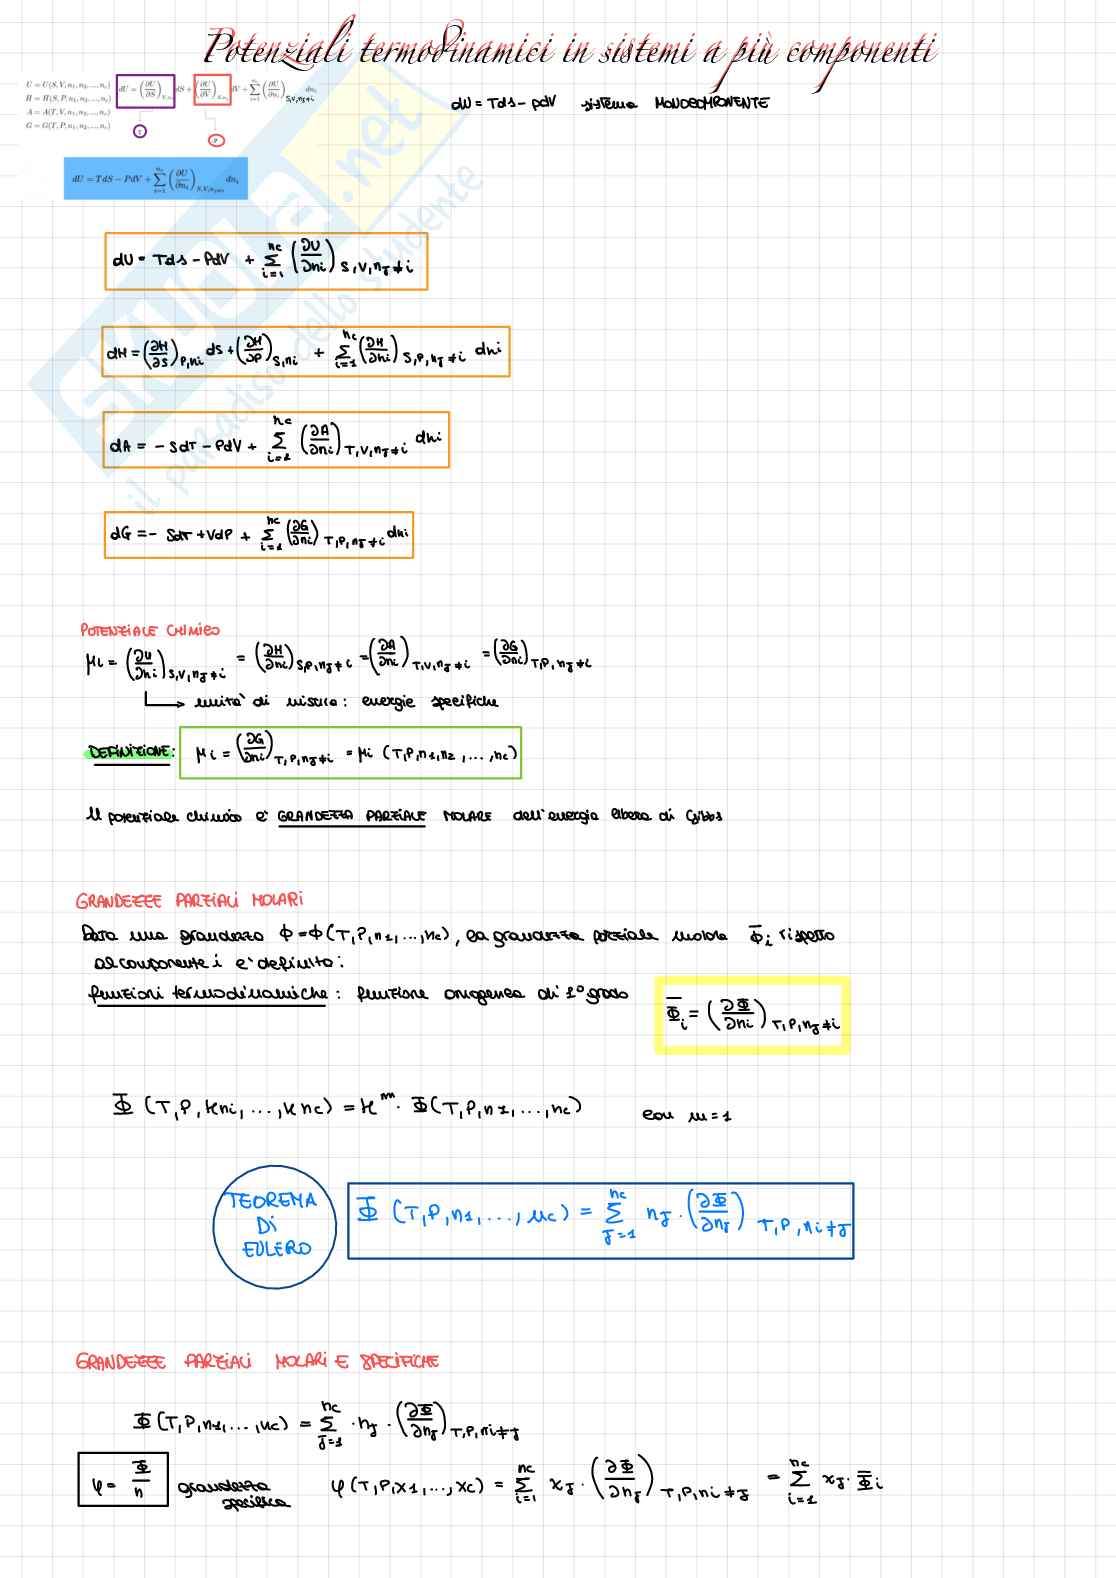 Potenziali termodinamici in sistemi a più componenti
U = U(S, V, n₁, n₂, ..., nc)
H = H(S, P, n₁, n₂, ..., nc)
A = A(T, V, n₁, n₂, ..., nc)
G = G(T, P, n₁, n₂, ..., nc)
dU = (∂U/∂S)V,ni dS + (∂U/∂V)S,ni dV + Σ i=1 nc (∂U/∂ni) S,V,nj≠i dni
T
P
dU = TdS − PdV sistema MONOCOMPONENTE
dU = TdS − PdV + Σ i=1 nc (∂U/∂ni) S,V,nj≠i dni
dU = TdS − PdV + Σ i=1 nc (∂U/∂ni) S,V,nJ≠i
dH = (∂H/∂S) P,ni dS + (∂H/∂P) S,ni + Σ i=1 nc (∂H/∂ni) S,P,nJ≠i dni
dA = − SdT − PdV + Σ i=1 nc (∂A/∂ni) T,V,nJ≠i dni
dG = − SdT + VdP + Σ i=1 nc (∂G/∂ni) T,P,nJ≠i dni
POTENZIALE CHIMICO
μi = (∂U/∂ni) S,V,nJ≠i = (∂H/∂ni) S,P,nJ≠i = (∂A/∂ni) T,V,nJ≠i = (∂G/∂ni) T,P,nJ≠i
unità di misura: energie specifiche
DEFINIZIONE: μi = (∂G/∂ni) T,P,nJ≠i = μi (T,P,n1,n2,...,nc)
Il potenziale chimico è GRANDEZZA PARZIALE MOLARE dell'energia libera di Gibbs
GRANDEZZE PARZIALI MOLARI
Data una grandezza Φ=Φ(T,P,n1,...,nc), la grandezza parziale molare Φ̅i rispetto
al componente i è definita:
funzioni termodinamiche: funzione omogenea di 1° grado
Φ̅i = (∂Φ/∂ni) T,P,nJ≠i
Φ (T,P,kni,...,knc) = k^m · Φ(T,P,n1,...,nc) con m=1
TEOREMA
DI
EULERO
Φ (T,P,n1,...,nc) = Σ J=1 nc nJ · (∂Φ/∂nJ) T,P,ni≠J
GRANDEZZE PARZIALI MOLARI E SPECIFICHE
Φ(T,P,n1,...,nc) = Σ J=1 nc · nJ · (∂Φ/∂nJ) T,P,ni≠J
φ = Φ/n grandezza
specifica
φ(T,P,x1,...,xc) = Σ i=1 nc xJ · (∂Φ/∂nJ) T,P,ni≠J = Σ i=1 nc xJ · Φ̅i
SKUOLA.net
il paradiso dello studente